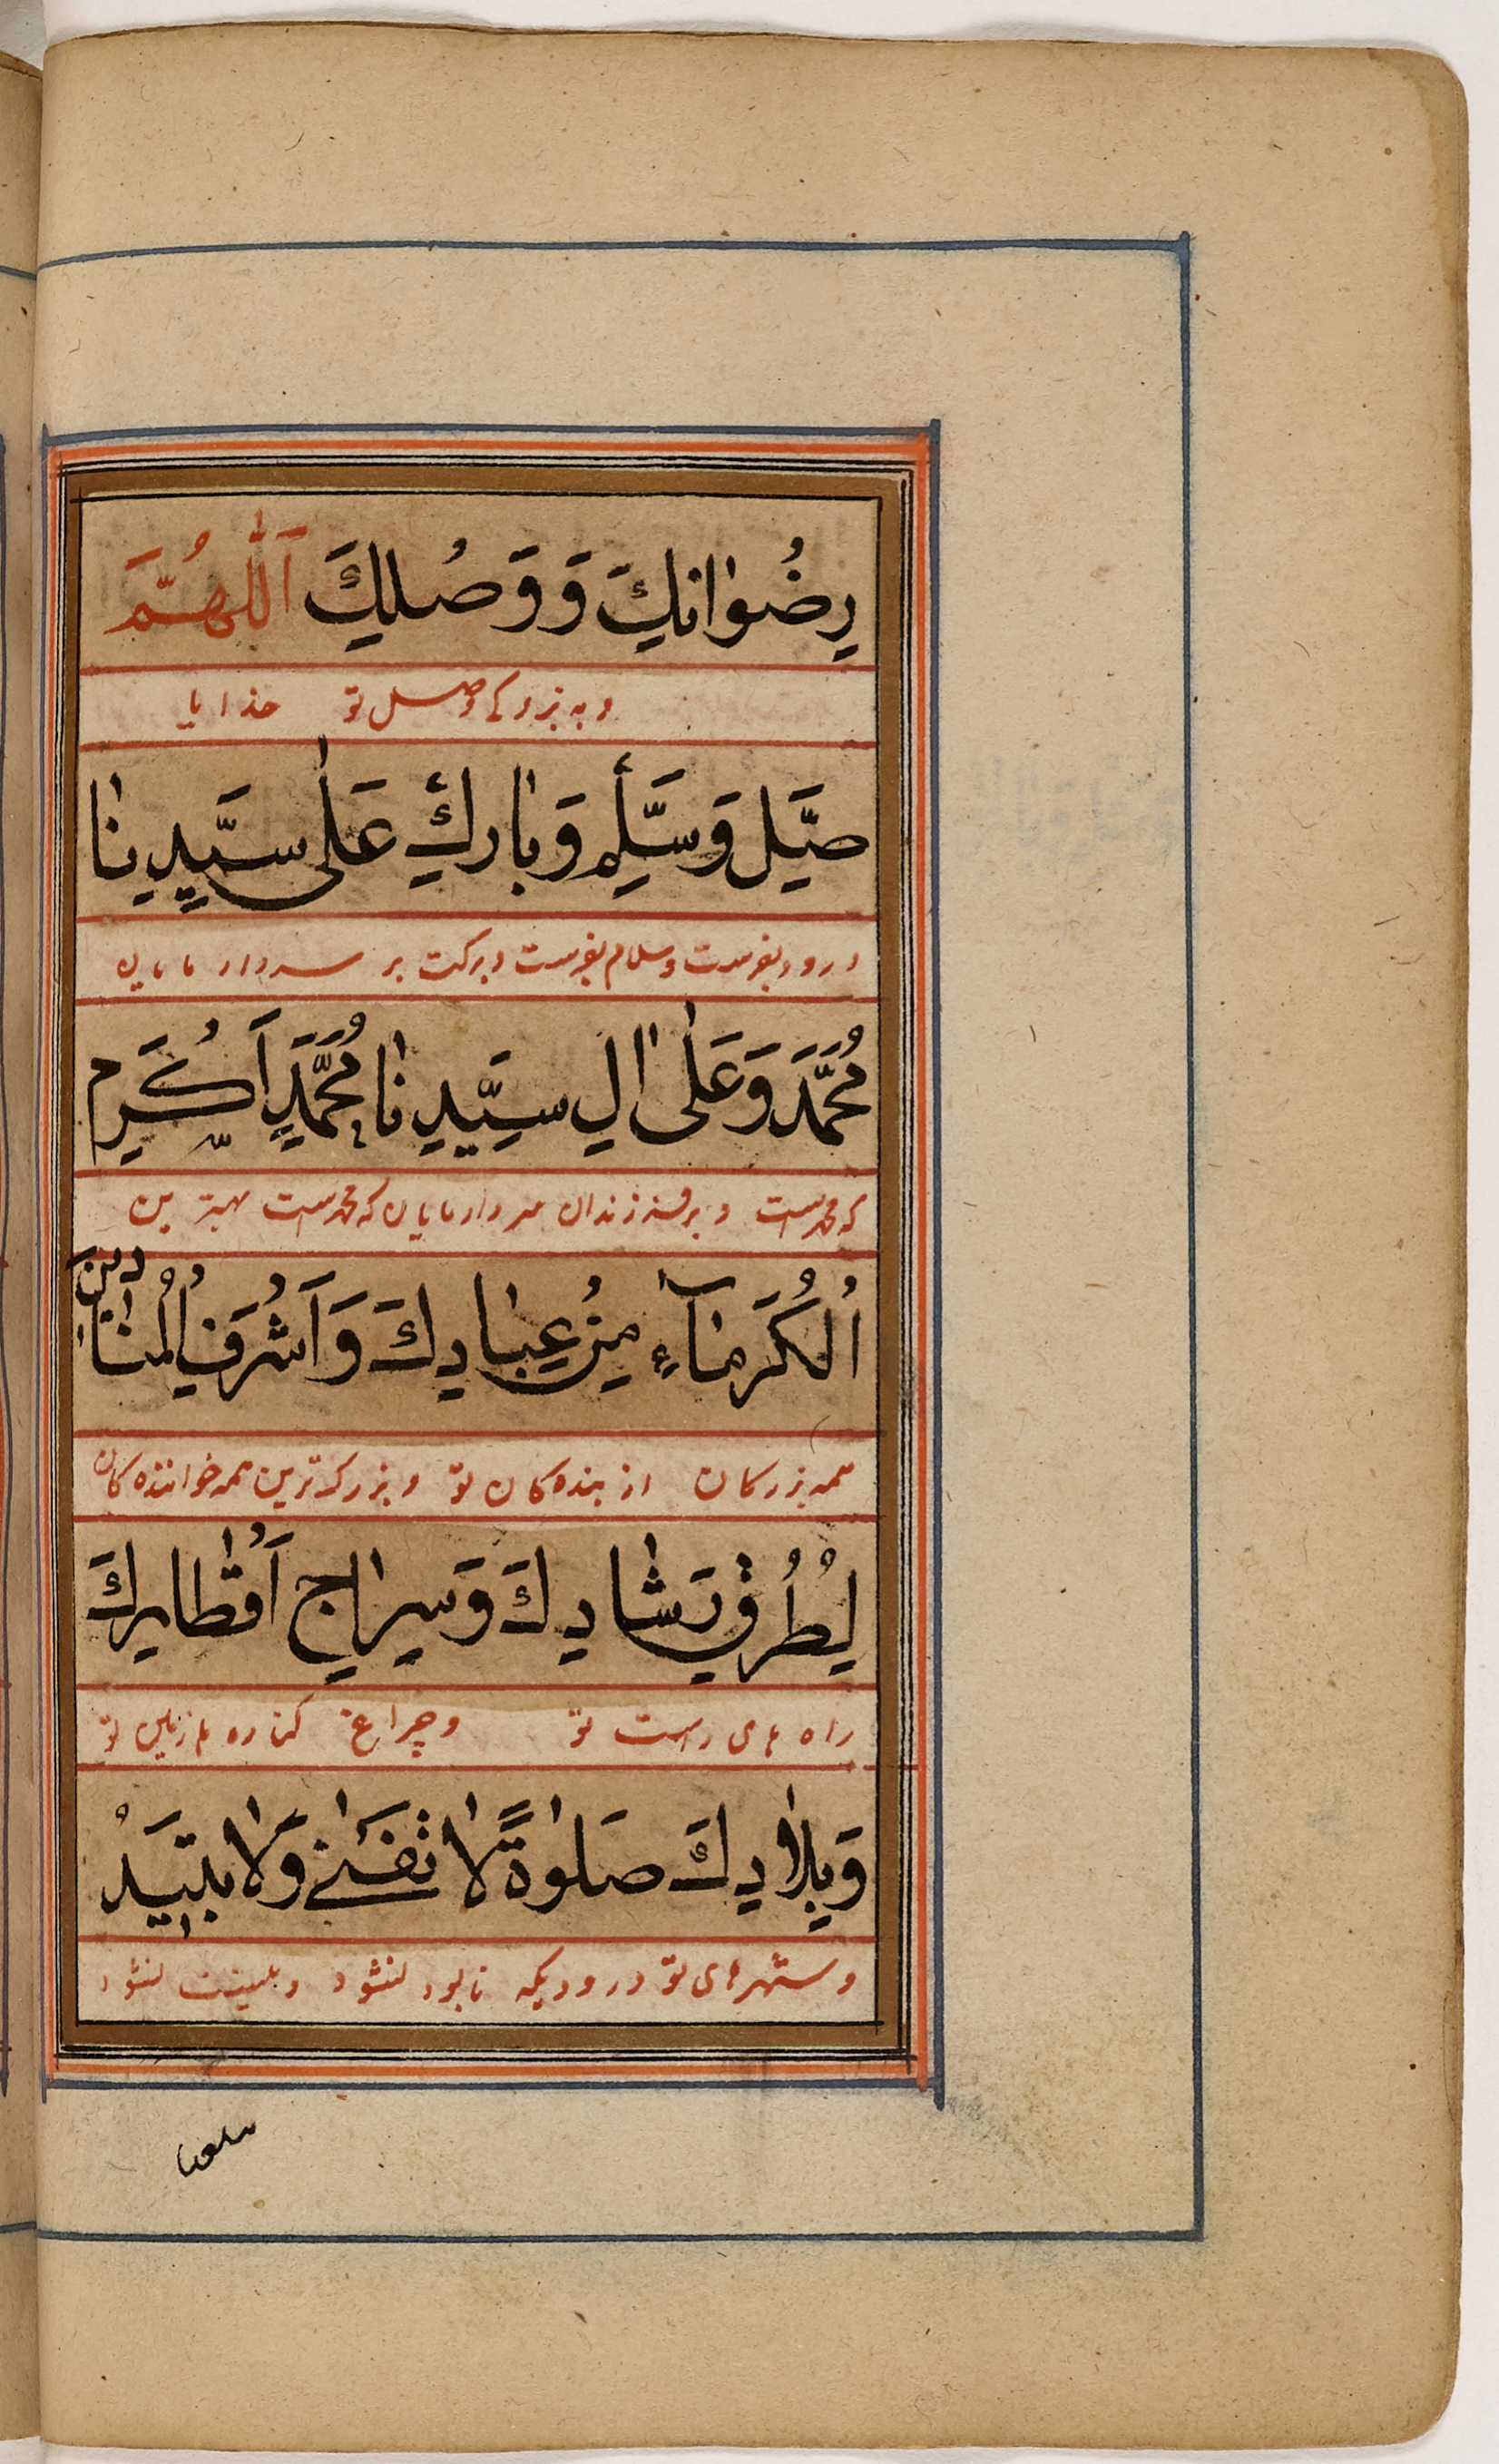 رِضْوَانِكَ وَ وَصْلِكَ اَللّٰهُمَّ
و به بزرگی وصل تو خدایا
صَلِّ وَسَلِّمْ وَبَارِكْ عَلٰى سَيِّدِنَا
درود بفرست و سلام بفرست و برکت بر سردار مایان
مُحَمَّدٍ وَعَلٰى اٰلِ سَيِّدِنَا مُحَمَّدٍ اَكْرَمِ
که محمد است و بر فرزندان سردار مایان که محمد است بهترین
الْكُرَمَآءِ مِنْ عِبَادِكَ وَاَشْرَفِ الْمُنَادِينَ
همه بزرکان از بنده کان تو و بزرک ترین همه خواننده کان
لِطُرُقِ رَشَادِكَ وَسِرَاجِ اَقْطَارِكَ
راه های راست تو و چراغ کناره ها زمین تو
وَبِلَادِكَ صَلٰوةً لَا تَفْنٰى وَلَا تَبِيْدُ
و شهرهای تو درودیکه نابود نشود و نیست نشود